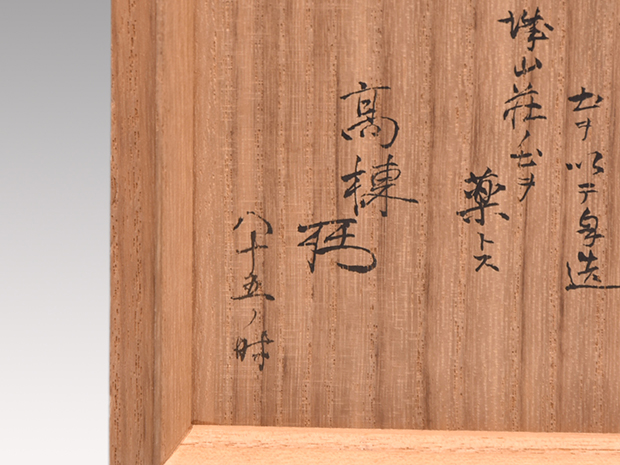 土ヲ以テ造
城山荘ノ土ヲ
薬トス
高棟
八十五ノ時